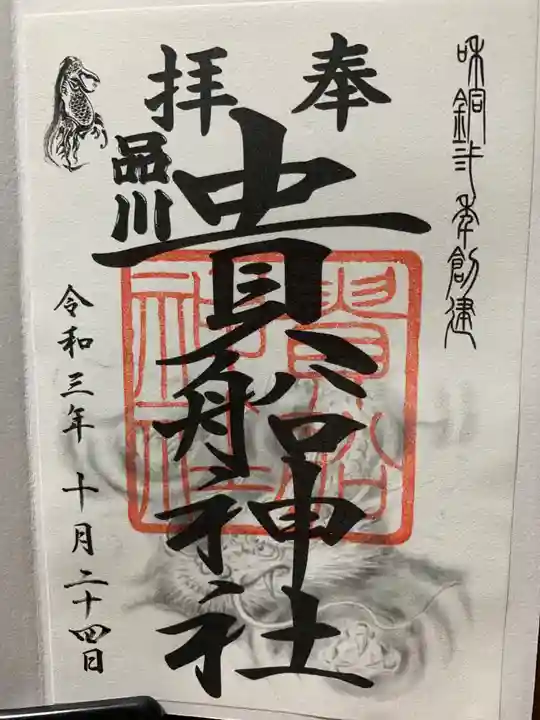 和銅弐年創建
奉拝
貴船神社
品川
貴船神社
令和三年 十月二十四日